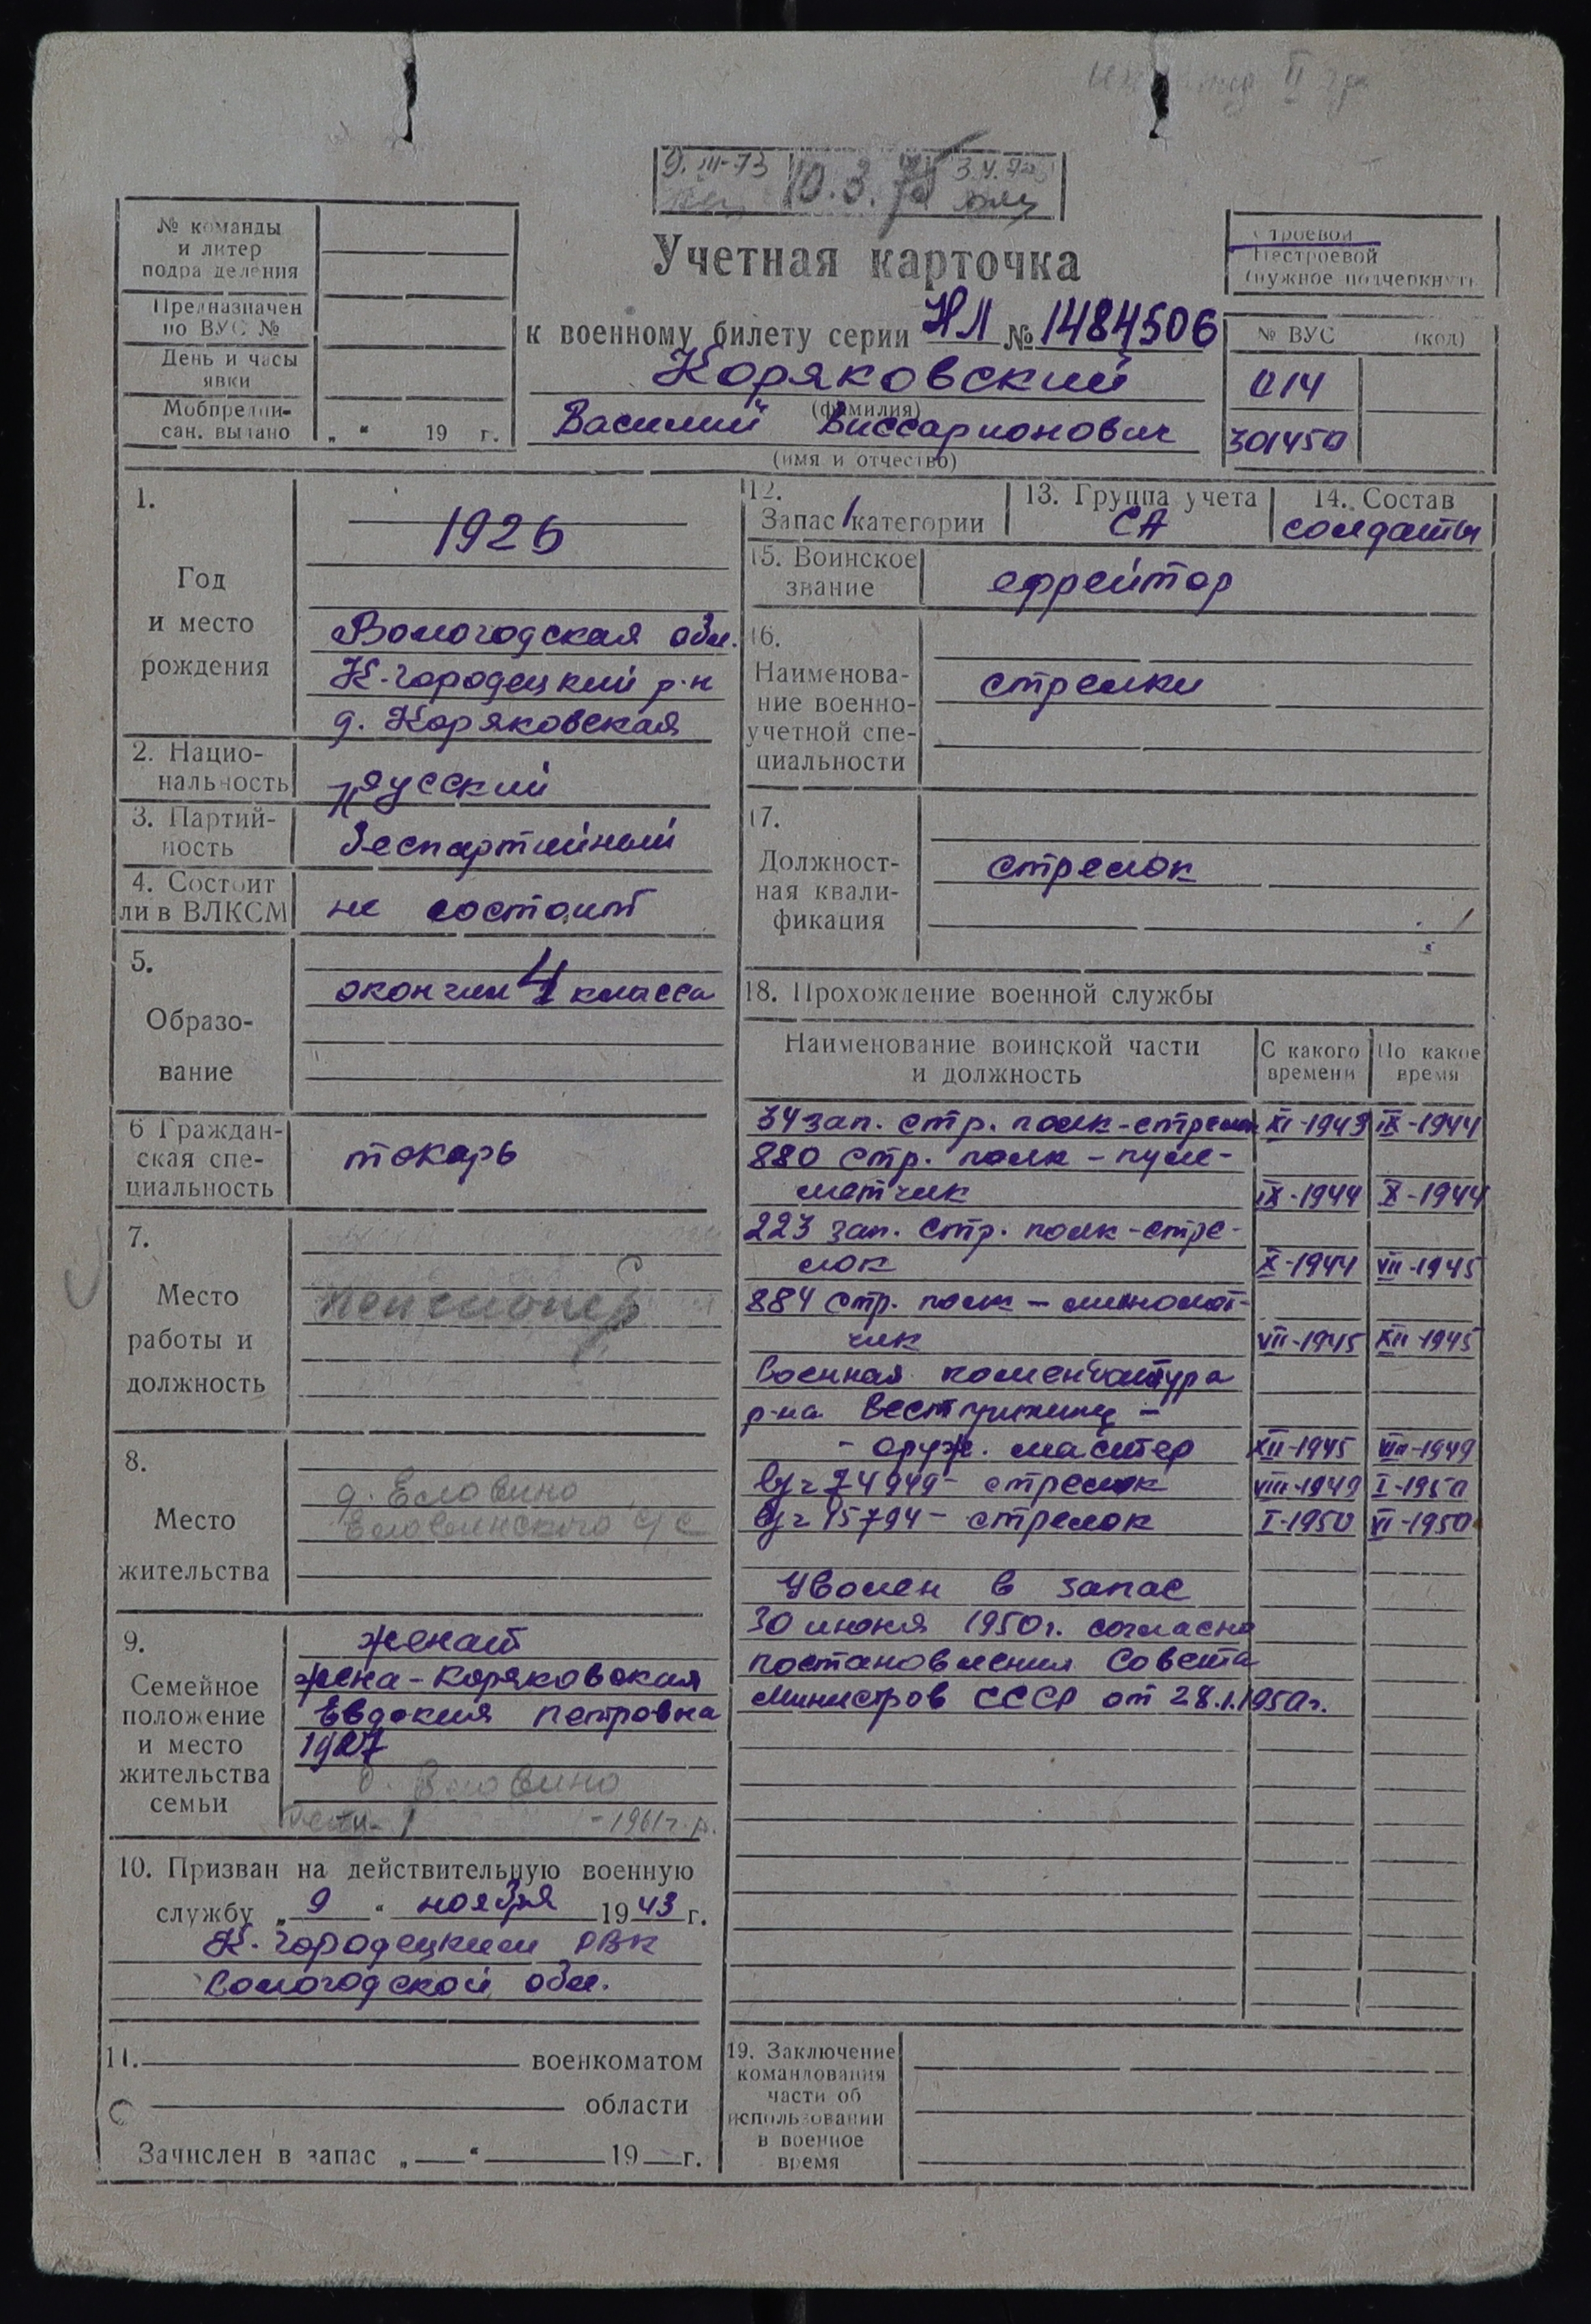 II гр
9.III-73 10.3.75
№ команды
и литер
подразделения
Предназначен
по ВУС №
День и часы
явки
Мобпредпи-
сан. выдано „ “ 19 г.
Учетная карточка
к военному билету серии НЛ № 1484506
Коряковский
(фамилия)
Василий Виссарионович
(имя и отчество)
Строевой
Нестроевой
(нужное подчеркнуть
№ ВУС (код)
014
301450
1.
Год
и место
рождения
1926
Вологодская обл.
К-Городецкий р-н
д. Коряковская
2. Нацио-
нальность
русский
3. Партий-
ность
беспартийный
4. Состоит
ли в ВЛКСМ
не состоит
5.
Образо-
вание
окончил 4 класса
6 Граждан-
ская спе-
циальность
токарь
7.
Место
работы и
должность
пенсионер
8.
Место
жительства
д. Еловино
Еловинского с/с
9.
Семейное
положение
и место
жительства
семьи
женат
жена - Коряковская
Евдокия Петровна
1927
д. Еловино
дети - 1 - 1961 г.р.
10. Призван на действительную военную
службу „ 9 “ ноября 1943 г.
К-Городецким РВК
Вологодской обл.
11. военкоматом
области
Зачислен в запас „ “ 19 г.
12.
Запас 1 категории
13. Группа учета
СА
14. Состав
солдаты
15. Воинское
звание
ефрейтор
16.
Наименова-
ние военно-
учетной спе-
циальности
стрелки
17.
Должност-
ная квали-
фикация
стрелок
18. Прохождение военной службы
Наименование воинской части
и должность
С какого
времени
По какое
время
34 зап. стр. полк - стрелок XI-1943 IX-1944
880 стр. полк - пуле-
метчик IX-1944 X-1944
223 зап. стр. полк - стре-
лок X-1944 VII-1945
884 стр. полк - миномет-
чик VII-1945 XII-1945
Военная комендатура
р-на Вестпригниц -
- оруж. мастер XII-1945 VIII-1949
в/ч 74949 - стрелок VIII-1949 I-1950
в/ч 45794 - стрелок I-1950 VI-1950
Уволен в запас
30 июня 1950г. согласно
постановления Совета
Министров СССР от 28.1.1950г.
19. Заключение
командования
части об
использовании
в военное
время